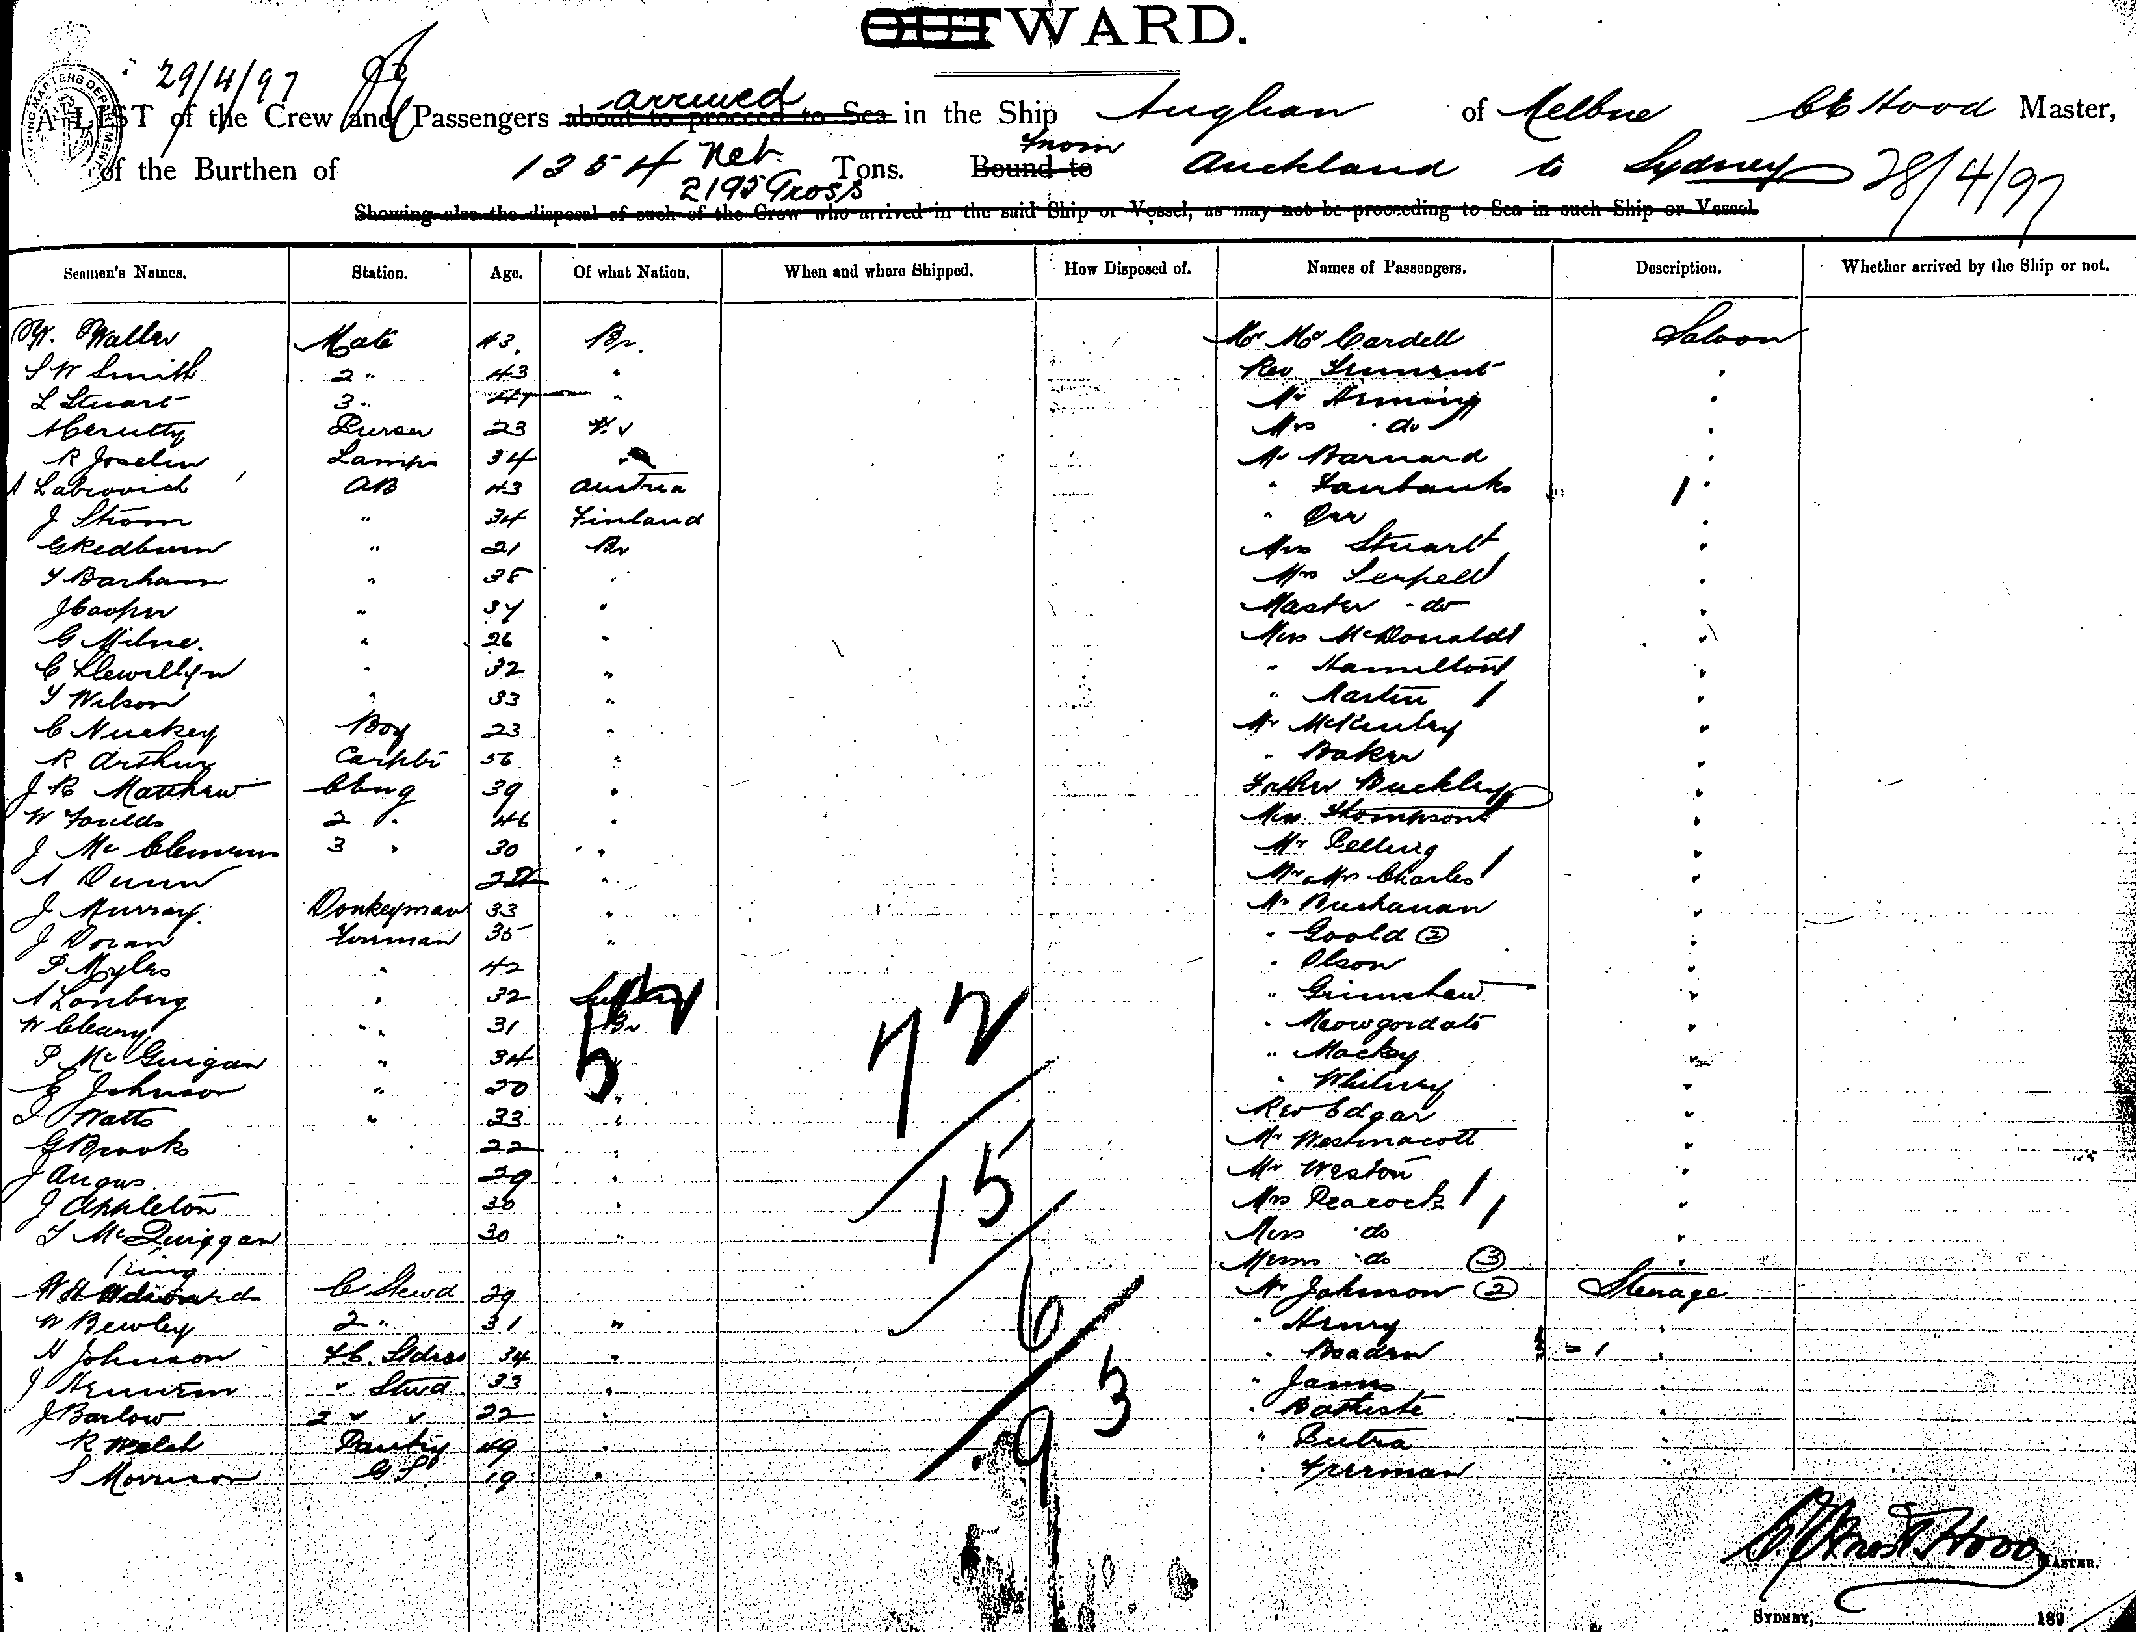 OUTWARD.
29/4/97
A LIST of the Crew and Passengers about to proceed to Sea arrived in the Ship Anglian of Melbne C E Hood Master,
of the Burthen of 1354 Net 2195 Gross Tons. Bound to From Auckland to Sydney 28/4/97
Showing also the disposal of such of the Crew who arrived in the said Ship or Vessel, as may not be proceeding to Sea in such Ship or Vessel.
Seamen's Names. Station. Age. Of what Nation. When and where Shipped. How Disposed of. Names of Passengers. Description. Whether arrived by the Ship or not.
W. Waller Mate 43 Br. Cardell Saloon
S W Smith 2 " 43 " Rev "
L Stuart 3 " " Mr "
Purser 23 Br Mrs do "
R Joselin Lamps 34 " Mr Barnard "
A Labrovich AB 43 Austria " Fairbanks 1 "
J Strom " 34 Finland " Orr "
G Redburn " 21 Br Mrs Stuart "
T Barham " 38 " Mrs Serpell "
J Cooper " 34 " Master do "
G Milne. " 26 " Miss McDonald "
C Llewellyn " 32 " " Hamilton "
T Wilson " 33 " " Martin "
C Nuckey Boy 23 " Mr McKinley "
R Arthur 56 " " Baker "
J R Matthew 39 " Father Buckley "
W Foulds 2 " 46 " Miss Thompson "
J Mc 3 " 30 " Mr Pelling "
A Dunn " Mr Mrs Charles "
J Murray. Donkeyman 33 " Mr Buchanan "
J Doran Fireman 35 " " Goold 2 "
P Myles " 42 " Olson "
A Lonberg " 32 " Grimshaw "
W Cleary " 31 Br "
P McGuigan " 34 " " Mackay "
E Johnson " 20 " " Whitney "
Watts " 33 " Rev Edgar "
G Brooks 22 " Mr Westmacott "
J Angus 29 " Mr Weston "
J Appleton 30 " Mrs Peacock "
T McQuiggan 30 " Miss do "
King do 3 "
C Stewd 29 Mr Johnson 2 Steerage
W Bewley 2 " 31 " " Henry "
H Johnson F.C. Stdrss 34 " " = 1 "
J " Stwd 33 " " James "
J Barlow 2 " " 22 " " Battiste "
R Welch Pantry 49 " " "
S Morrison G S 19 " " "
5
72
15
6
3
9
C Ernest Hood MASTER.
SYDNEY, 189